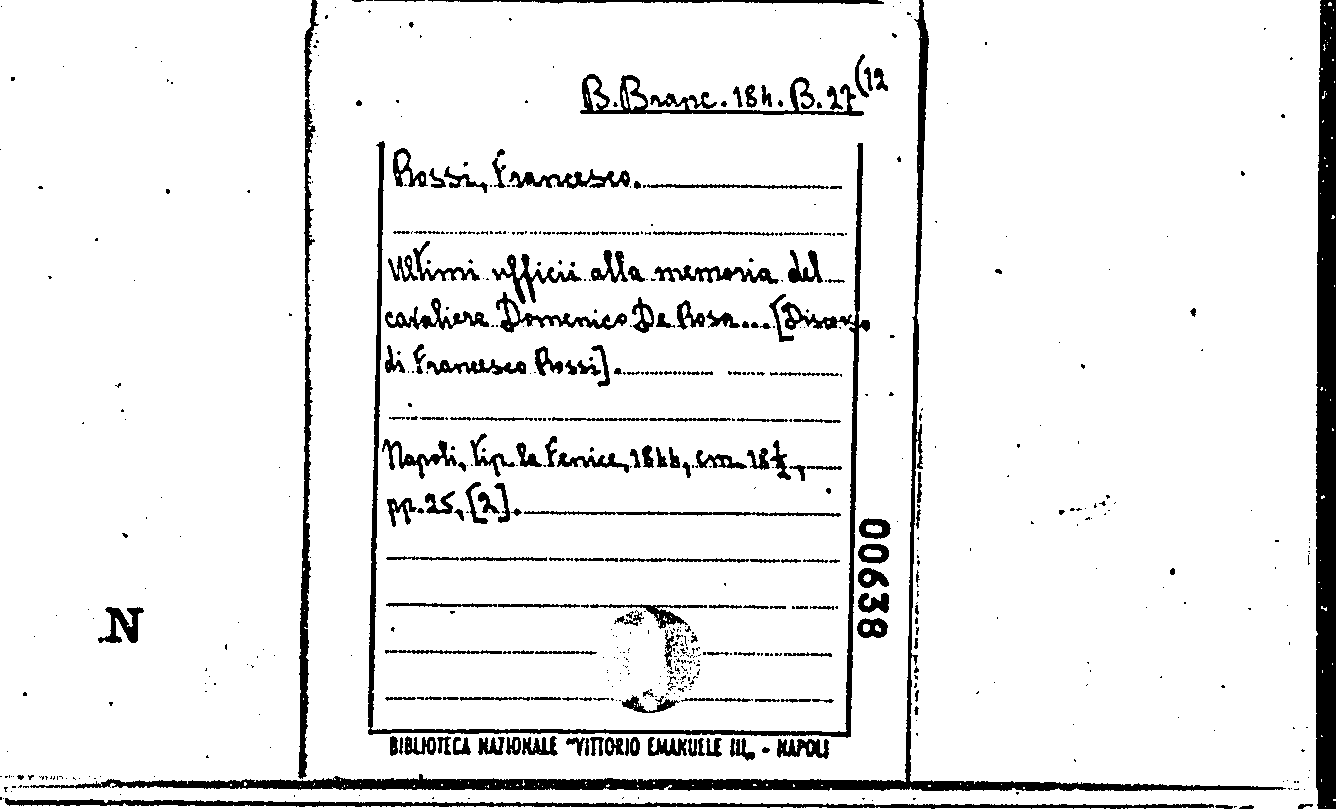 B. Branc. 184. B. 27(12
Rossi, Francesco.
Ultimi ufficii alla memoria del
cavaliere Domenico De Rosa... [Discorso
di Francesco Rossi].
Napoli, Tip. la Fenice, 1844, cm. 18½,
pp. 25, [2].
00638
N
BIBLIOTECA NAZIONALE "VITTORIO EMANUELE III„ - NAPOLI